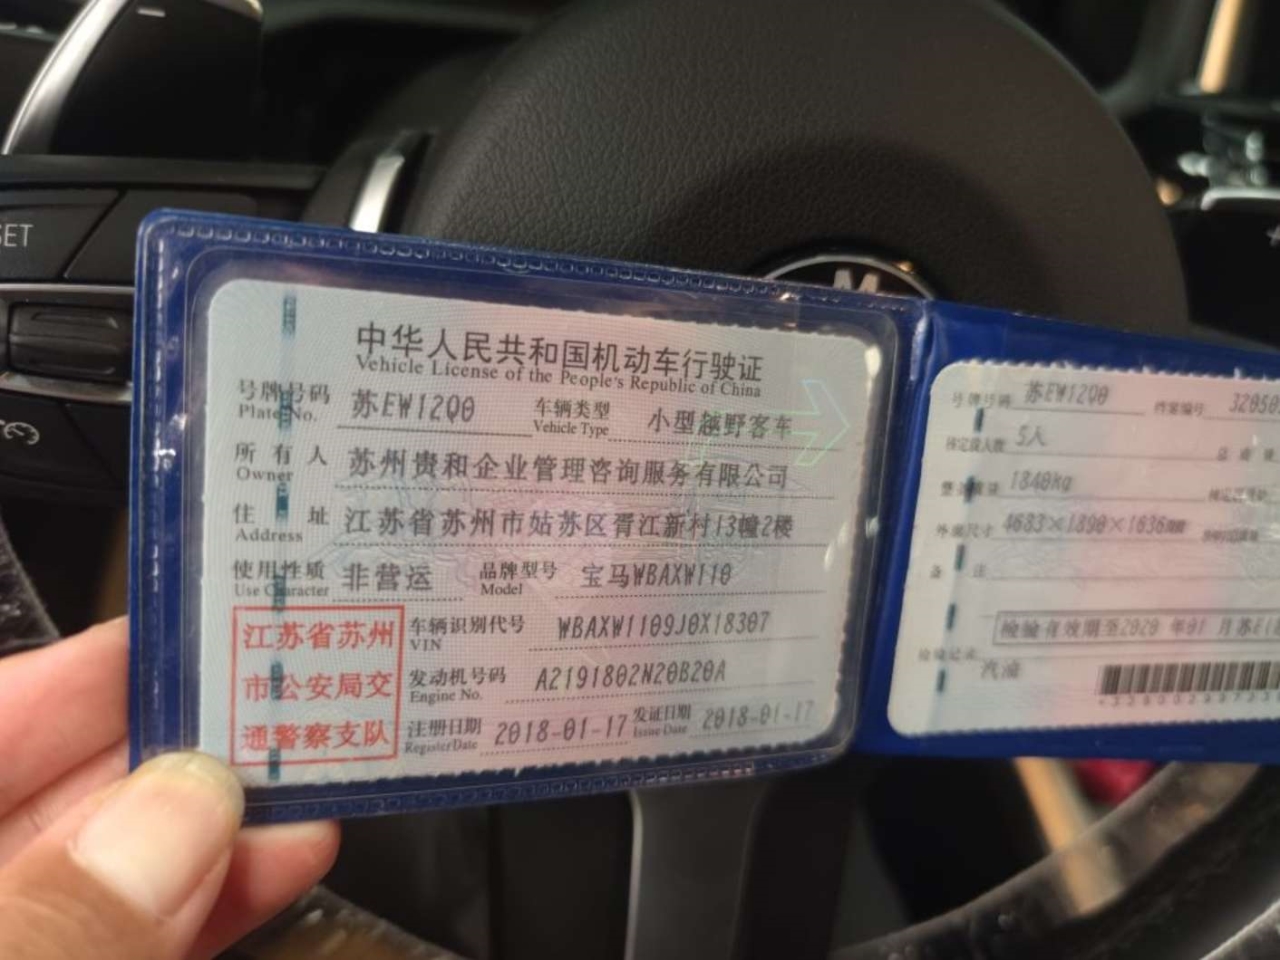 SET
中华人民共和国机动车行驶证
Vehicle License of the People's Republic of China
号牌号码 苏EW12Q0 车辆类型 小型越野客车
Plate No. Vehicle Type
所有人 苏州贵和企业管理咨询服务有限公司
Owner
住址 江苏省苏州市姑苏区胥江新村13幢2楼
Address
使用性质 非营运 品牌型号 宝马WBAXW110
Use Character Model
江苏省苏州
市公安局交
通警察支队
车辆识别代号 WBAXW1109J0X18307
VIN
发动机号码 A2191802N20B20A
Engine No.
注册日期 2018-01-17 发证日期 2018-01-17
Register Date Issue Date
号牌号码 苏EW12Q0 档案编号 32050
核定载人数 5人
整备质量 1840kg
外廓尺寸 4683×1890×1636
备注
检验有效期至2020年01月苏E
检验记录
汽油